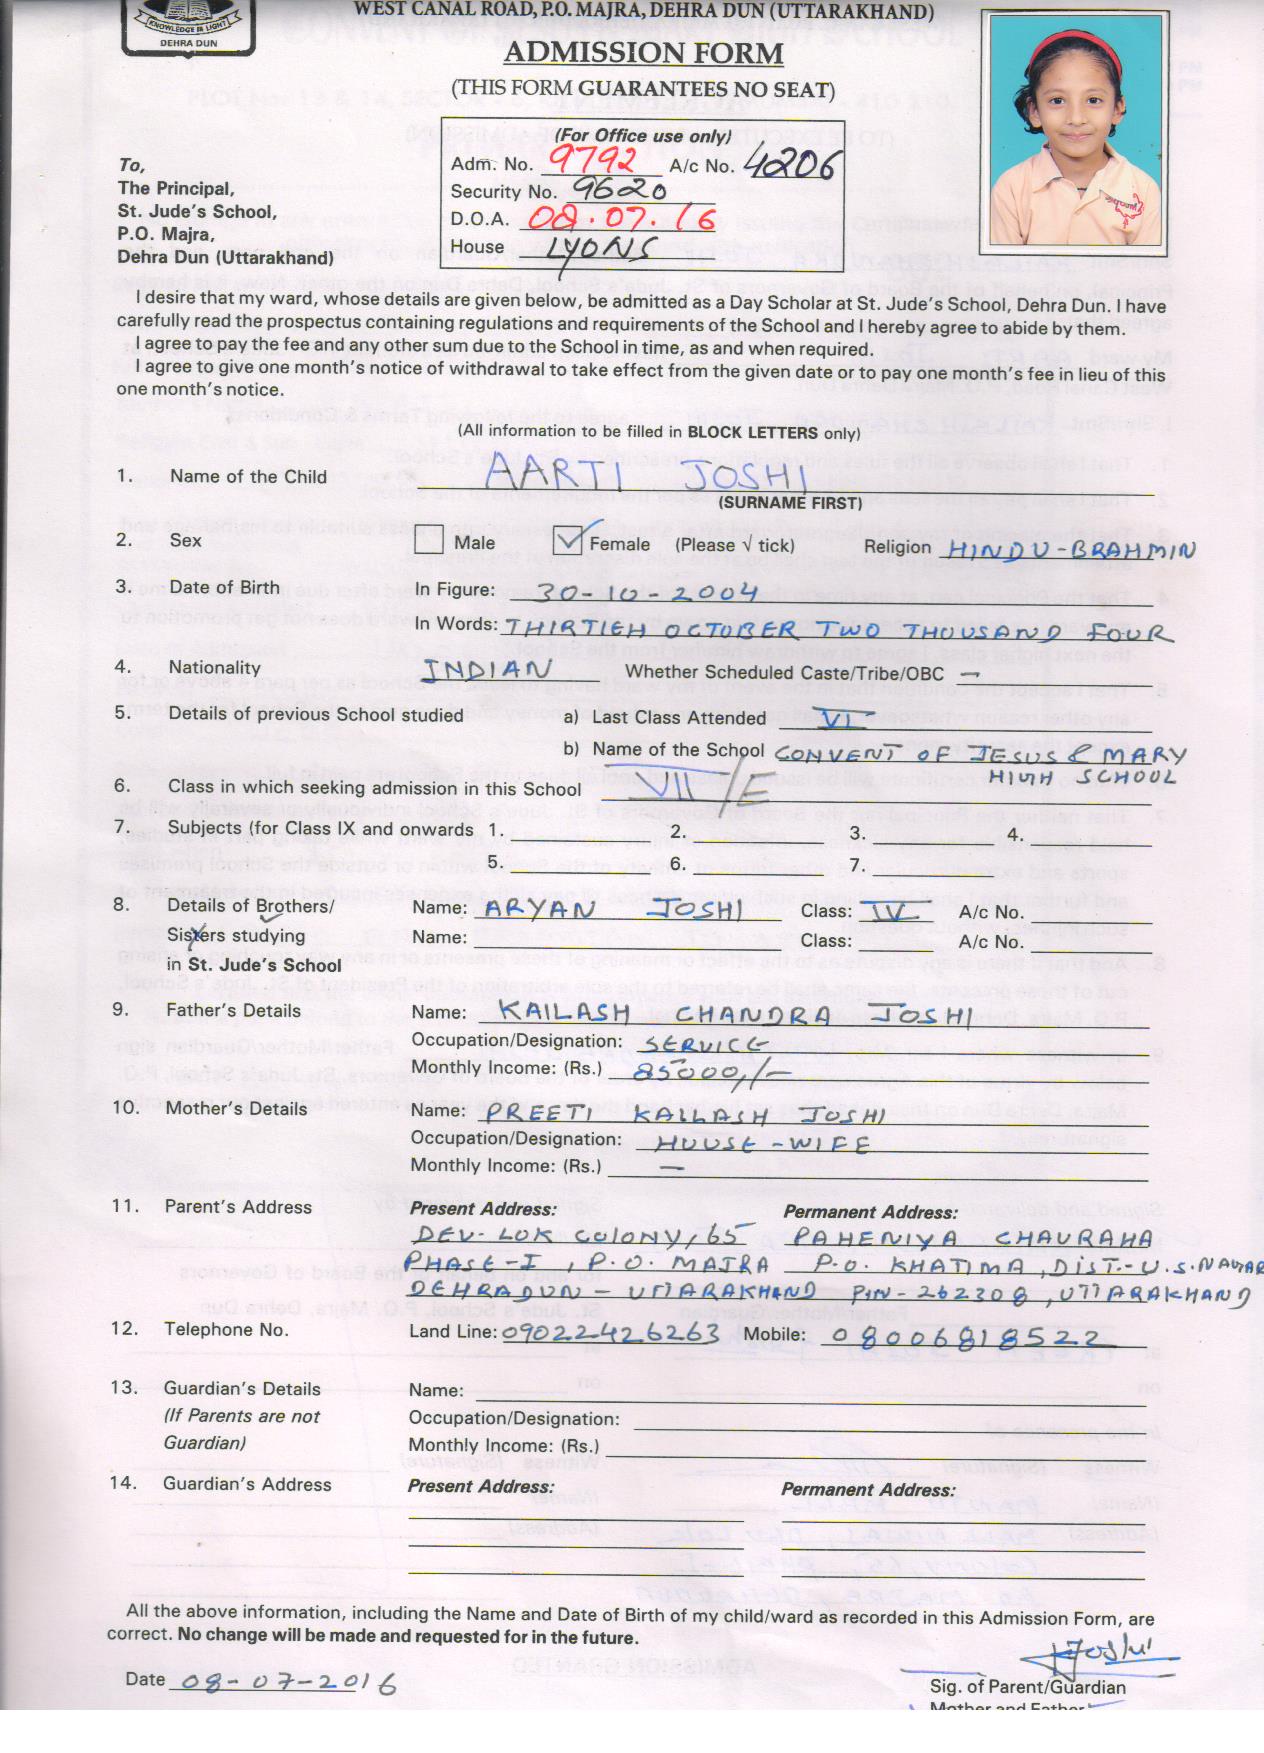 KNOWLEDGE IS LIGHT
DEHRA DUN
WEST CANAL ROAD, P.O. MAJRA, DEHRA DUN (UTTARAKHAND)
ADMISSION FORM
(THIS FORM GUARANTEES NO SEAT)
(For Office use only)
Adm. No. 9792 A/c No. 4206
Security No. 9620
D.O.A. 08.07.16
House LYONS
To,
The Principal,
St. Jude's School,
P.O. Majra,
Dehra Dun (Uttarakhand)
I desire that my ward, whose details are given below, be admitted as a Day Scholar at St. Jude's School, Dehra Dun. I have
carefully read the prospectus containing regulations and requirements of the School and I hereby agree to abide by them.
I agree to pay the fee and any other sum due to the School in time, as and when required.
I agree to give one month's notice of withdrawal to take effect from the given date or to pay one month's fee in lieu of this
one month's notice.
(All information to be filled in BLOCK LETTERS only)
1. Name of the Child AARTI JOSHI
(SURNAME FIRST)
2. Sex Male Female (Please √ tick) Religion HINDU-BRAHMIN
3. Date of Birth In Figure: 30-10-2004
In Words: THIRTIEH OCTOBER TWO THOUSAND FOUR
4. Nationality INDIAN Whether Scheduled Caste/Tribe/OBC —
5. Details of previous School studied a) Last Class Attended VI
b) Name of the School CONVENT OF JESUS & MARY
HIGH SCHOOL
6. Class in which seeking admission in this School VII/E
7. Subjects (for Class IX and onwards 1. 2. 3. 4.
5. 6. 7.
8. Details of Brothers/ Name: ARYAN JOSHI Class: IV A/c No.
Sisters studying Name: Class: A/c No.
in St. Jude's School
9. Father's Details Name: KAILASH CHANDRA JOSHI
Occupation/Designation: SERVICE
Monthly Income: (Rs.) 85000/-
10. Mother's Details Name: PREETI KAILASH JOSHI
Occupation/Designation: HOUSE-WIFE
Monthly Income: (Rs.) —
11. Parent's Address Present Address: Permanent Address:
DEV-LOK COLONY, 65 PAHENIYA CHAURAHA
PHASE-I, P.O. MAJRA P.O. KHATIMA, DIST.-U.S.NAGAR
DEHRADUN - UTTARAKHAND PIN-262308, UTTARAKHAND
12. Telephone No. Land Line: 09022426263 Mobile: 08006818522
13. Guardian's Details Name:
(If Parents are not Occupation/Designation:
Guardian) Monthly Income: (Rs.)
14. Guardian's Address Present Address: Permanent Address:
All the above information, including the Name and Date of Birth of my child/ward as recorded in this Admission Form, are
correct. No change will be made and requested for in the future.
KJoshi
Date 08-07-2016
Sig. of Parent/Guardian
Mother and Father